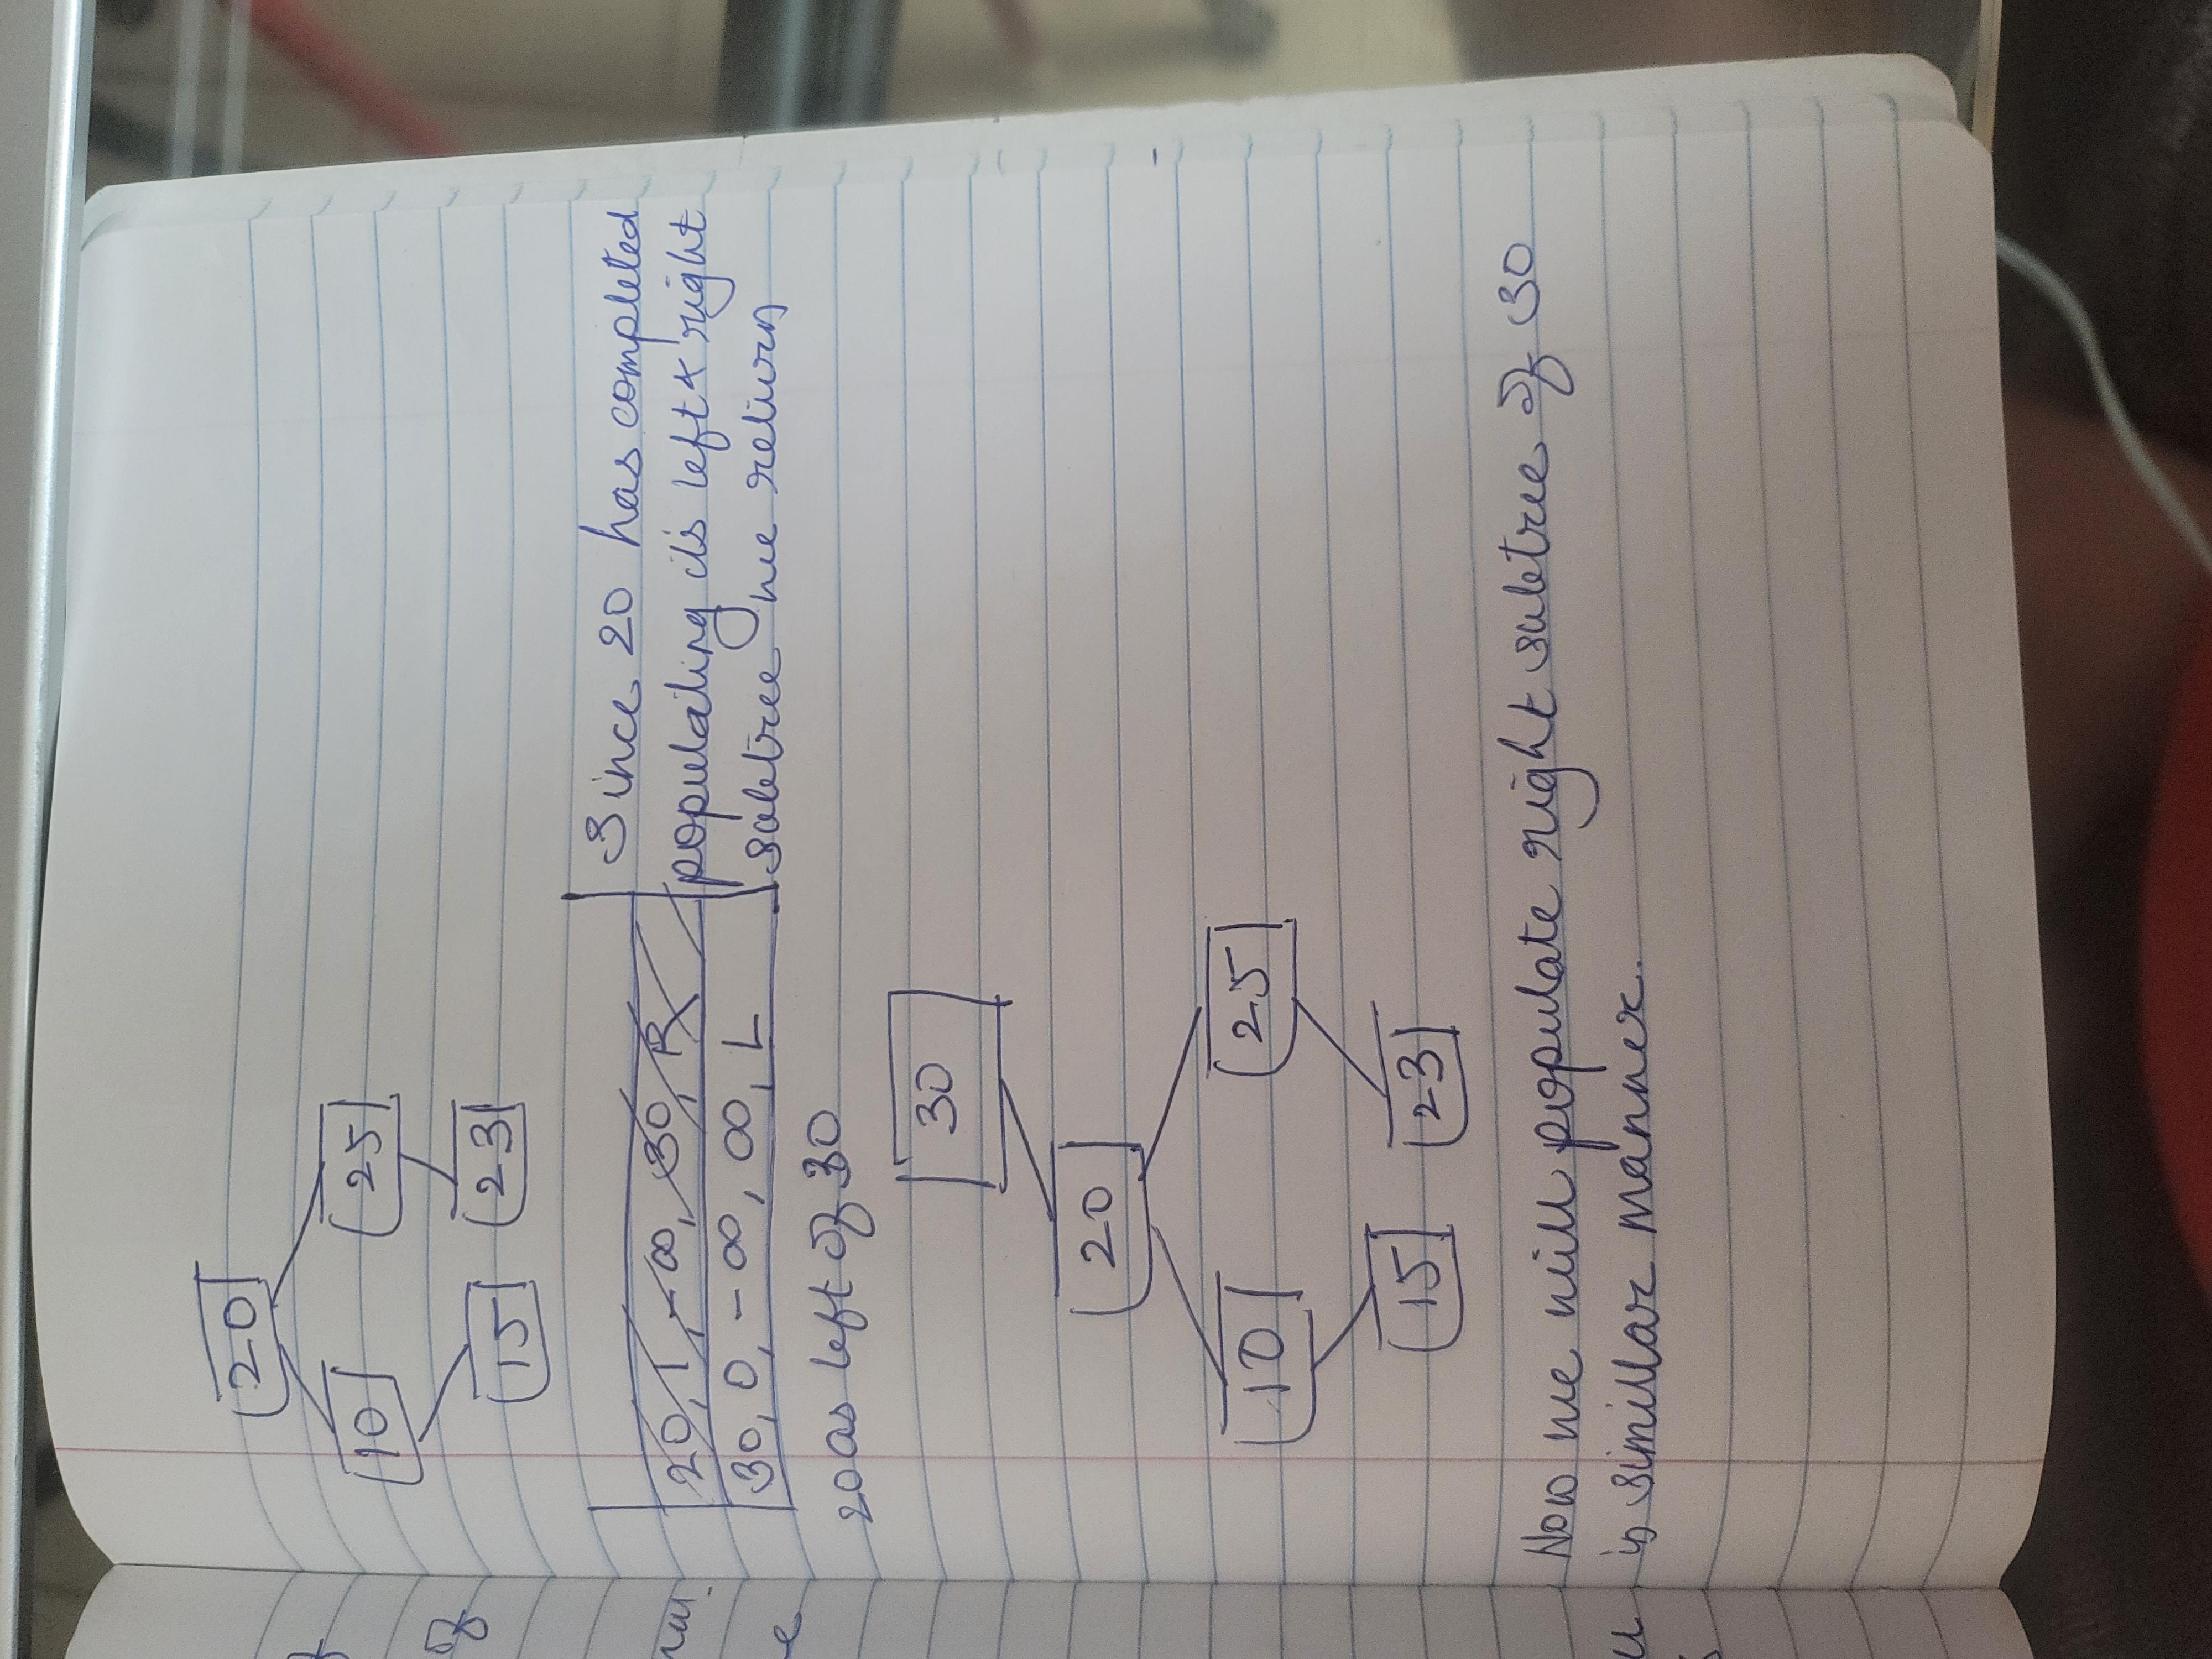 20
10 25
15 23
20, 1, -∞, 30, R
30, 0, -∞, ∞, L
Since 20 has completed
populating it's left & right
subtree we return
20 as left of 30
30
20
10 25
15 23
Now we will populate right subtree of 30
in simillar manner.
of
e